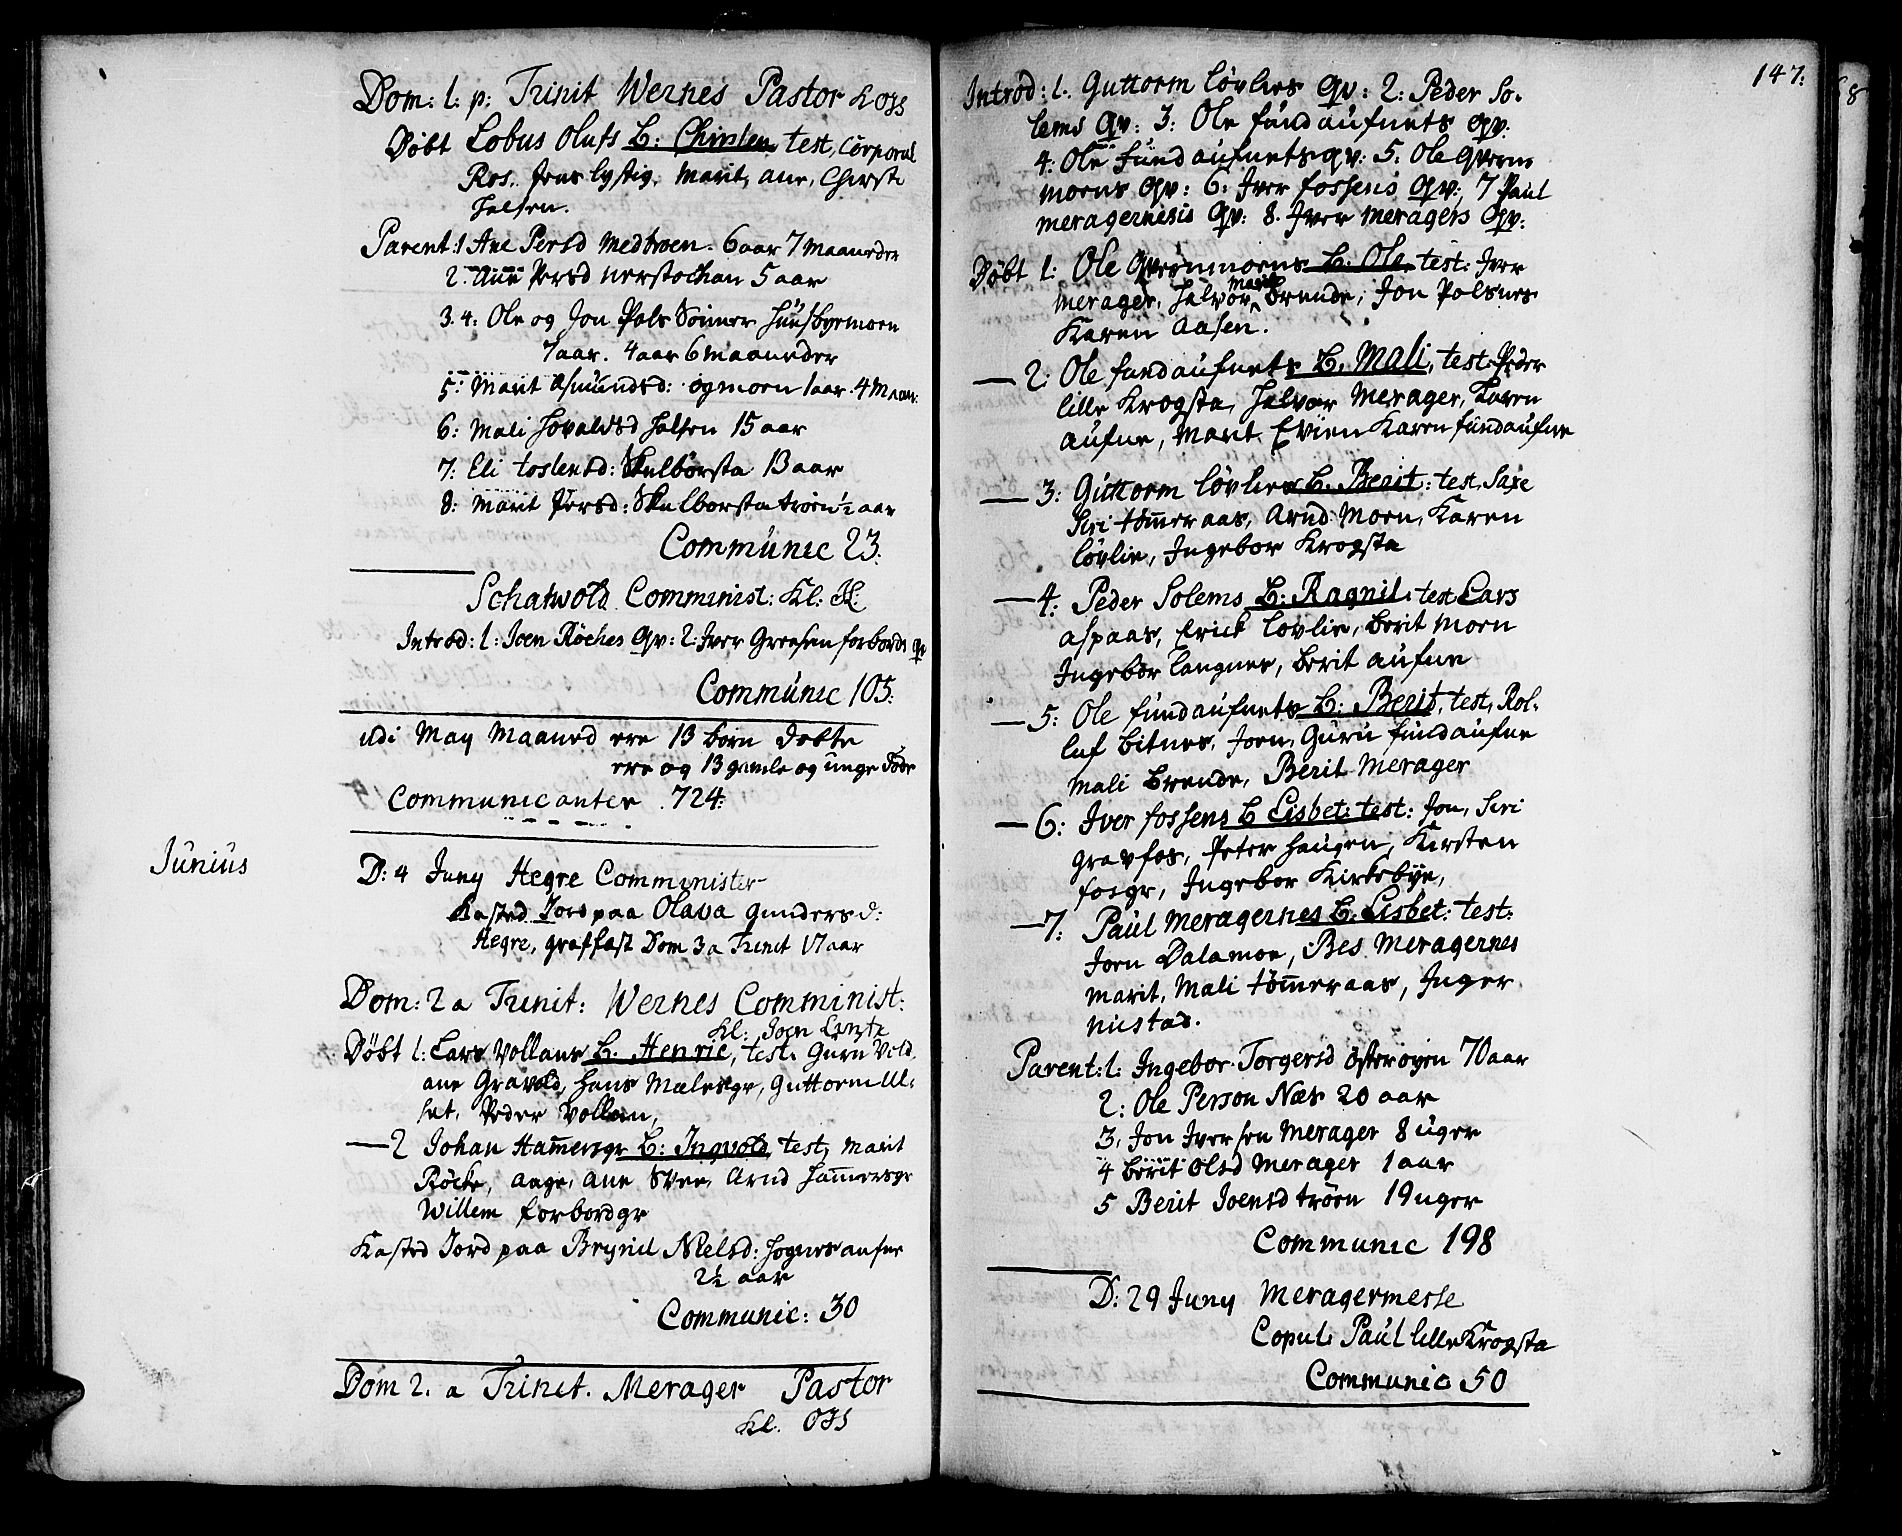 Dom: 1: p: Trinit Wernes Pastor
Døbt Lobus Olufs B: Chirsten test, Corporal
Ros. Jens lystig, Marit, ane, Chirsti
Halsen.
Parent: 1 Ane Persd Medtroen. 6 aar 7 Maaneder
2. Ane Persd 5 aar
3. 4: Ole og Jon Pols Sönner Huusbyemoen
7 aar. 4 aar 6 maaneder
5: Marit Asmundsd: ogmoen 1 aar. 4 Maan:
6: Mali Hovaldsd Halsen 15 aar
7. Eli toslensd: Skelborsta 13 aar
8: Marit Persd: Skelborsta trøen ½ aar
Commúnic 23:
Schatwold Comminist: Kl:
Introd: 1: Joen Röches Qv: 2: Jver Grensen forbords Qv
Commúnic 105:
udi May Maaned ere 13 børn døbte
ere og 13 gamle og unge døde
Communicanter 724:
Júniús
D: 4 Juny Hegre Comminister
Kasted Jord paa Olava Gundersd:
Hegre, graffast Dom 3 a Trinit 17 aar
Dom: 2 a Trinit: Wernes Comminist:
Kl: Joen
Døbt 1: Lars Vollans B: Henric, test. Guru Vold
ane Gravold, Hans Mælesgr, Guttorm Ul-
set, Peder Vollan,
2 Johan Hamersgr B: Ingvold, test, Marit
Röcke, aage, ane Svee, Arnd Hammersgr
Willem forbordgr
Kasted Jord paa Brynil Nielsd: Hognesaufne
2½ aar
Communic: 30
Dom 2. a Trinit. Merager Pastor
Kl.
147:
Introd: 1. Guttorm Lövlies Qv: 2: Peder So-
lems Qv: 3: Ole fundaufnets Qv:
4: Ole Fundaufnets qv: 5: Ole Qvern
moens Qv: 6: Jver fossens Qv: 7 Paul
meragernesis Qv: 8. Jver Meragers Qv:
Døbt 1: Ole Qvernmoens B: Ole, test: Jver
Merager, Halvor Marit Brende, Jon Polsnes
Karen Aasen.
2: Ole fundaufnets B. Mali, test: Peder
lille Krogsta, Halvor Merager, Karen
aufne, Marit Evien Karen fundaufne
3: Guttorm lövlies B. Berit: test, Saxe
Siri tömmeraas, Arnd Moen, Karen
lövlie, Ingebor Krogsta
4: Peder Solems B: Ragnil: test Lars
aspaas, Erick lövlie, Berit Moen
Ingebor Langnes, Berit aufne
5: Ole fundaufnets B: Berit, test, Rol-
luf Bitnes, Joen, Guru fundaufne
Mali Brende, Berit Merager
6: Jver fossens B Lisbet: test: Jon, Siri
Gravfos, Peter Haugen, Kirsten
fosgr, Ingebor Kirkebye,
7: Paul Meragernes B: Lisbet: test:
Joen Dalamoe, Bes Meragernes
Marit, Mali tömmeraas, Inger
Niistad.
Parent: 1: Ingebor Torgersd österöyen 70 aar
2: Ole Person Næs 20 aar
3, Jon Jversen Merager 8 uger
4 Berit Olsd Merager 1 aar
5 Berit Joensd trøen 19 uger
Communic 198
D: 29 Juny Meragermesse
Copul: Paul lille Krogsta
Communic 50